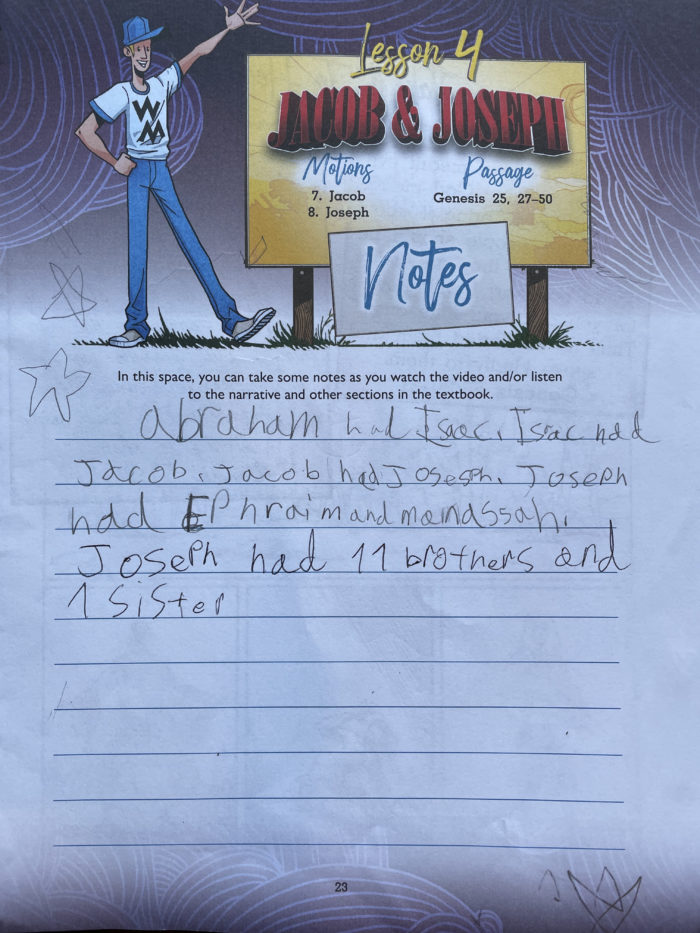 WM
Lesson 4
JACOB & JOSEPH
Motions
7. Jacob
8. Joseph
Passage
Genesis 25, 27–50
Notes
In this space, you can take some notes as you watch the video and/or listen
to the narrative and other sections in the textbook.
Abraham had Isaac. Isac had
Jacob. Jacob had Josesph. Joseph
had Ephraim and manassah.
Joseph had 11 brothers and
1 Sister
23